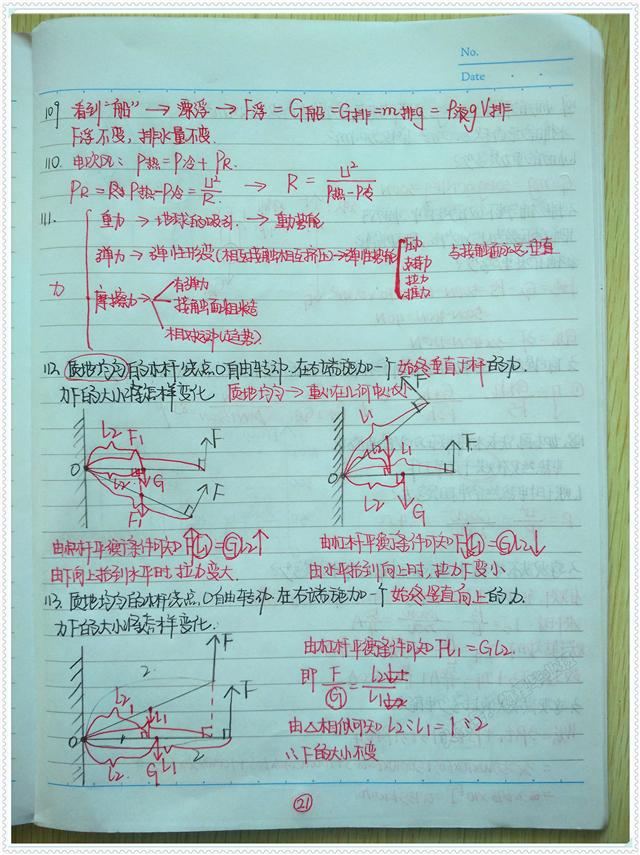 No.
Date
109 看到"船" → 漂浮 → F浮 = G船 = G排 = m排g = ρ液gV排
F浮不变, 排水量不变.
110. 电吹风: P热 = P冷 + PR.
PR = P热 - P冷 = U²/R → R = U²/P热-P冷
111.
重力 → 地球的吸引. → 重力势能
弹力 → 弹性形变(相互接触相互挤压) → 弹性势能
压力
支持力
拉力
推力
与接触面必垂直
力
摩擦力
有弹力
接触面粗糙
相对运动(趋势)
112. 质地均匀的木杆绕点O自由转动. 在右端施加一个始终垂直于杆的力.
力F的大小将怎样变化. 质地均匀 → 重心在几何中心
L2 F1 F O L2 G F1 F
F L1 L2 L1 F O L2 G
由杠杆平衡条件可知 F↑L1 = G L2↑
由下向上抬到水平时, 拉力变大.
由杠杆平衡条件可知 F↓L1 = G L2↓
由水平抬到向上时, 拉力F变小
113. 质地均匀的木杆绕点O自由转动. 在右端施加一个始终竖直向上的力.
力F的大小将怎样变化.
2 F F L2 L1 O 1 2 L2 G L1
由杠杆平衡条件可知 FL1 = GL2.
即 F/G = L2/L1
由△相似可知 L2:L1 = 1:2
∴F的大小不变
21